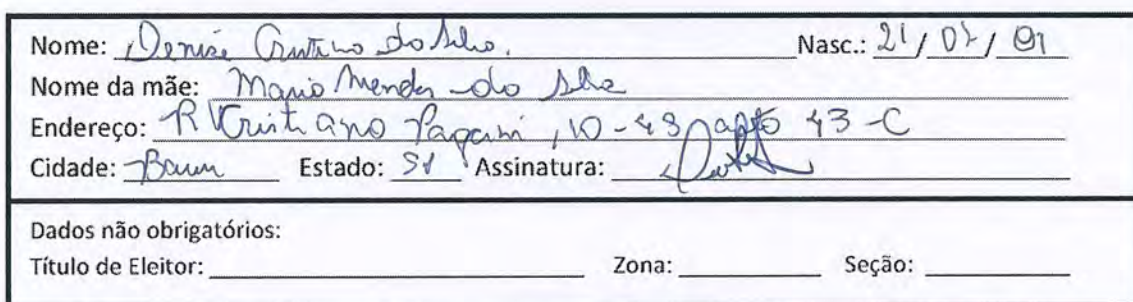 Nome: Denise Cristina da Silva. Nasc.: 21/07/91
Nome da mãe: Maria Mendes da Silva
Endereço: R Cristiano Pagani, 10-43 apto 43-C
Cidade: Bauru Estado: SP Assinatura:
Dados não obrigatórios:
Título de Eleitor: Zona: Seção: